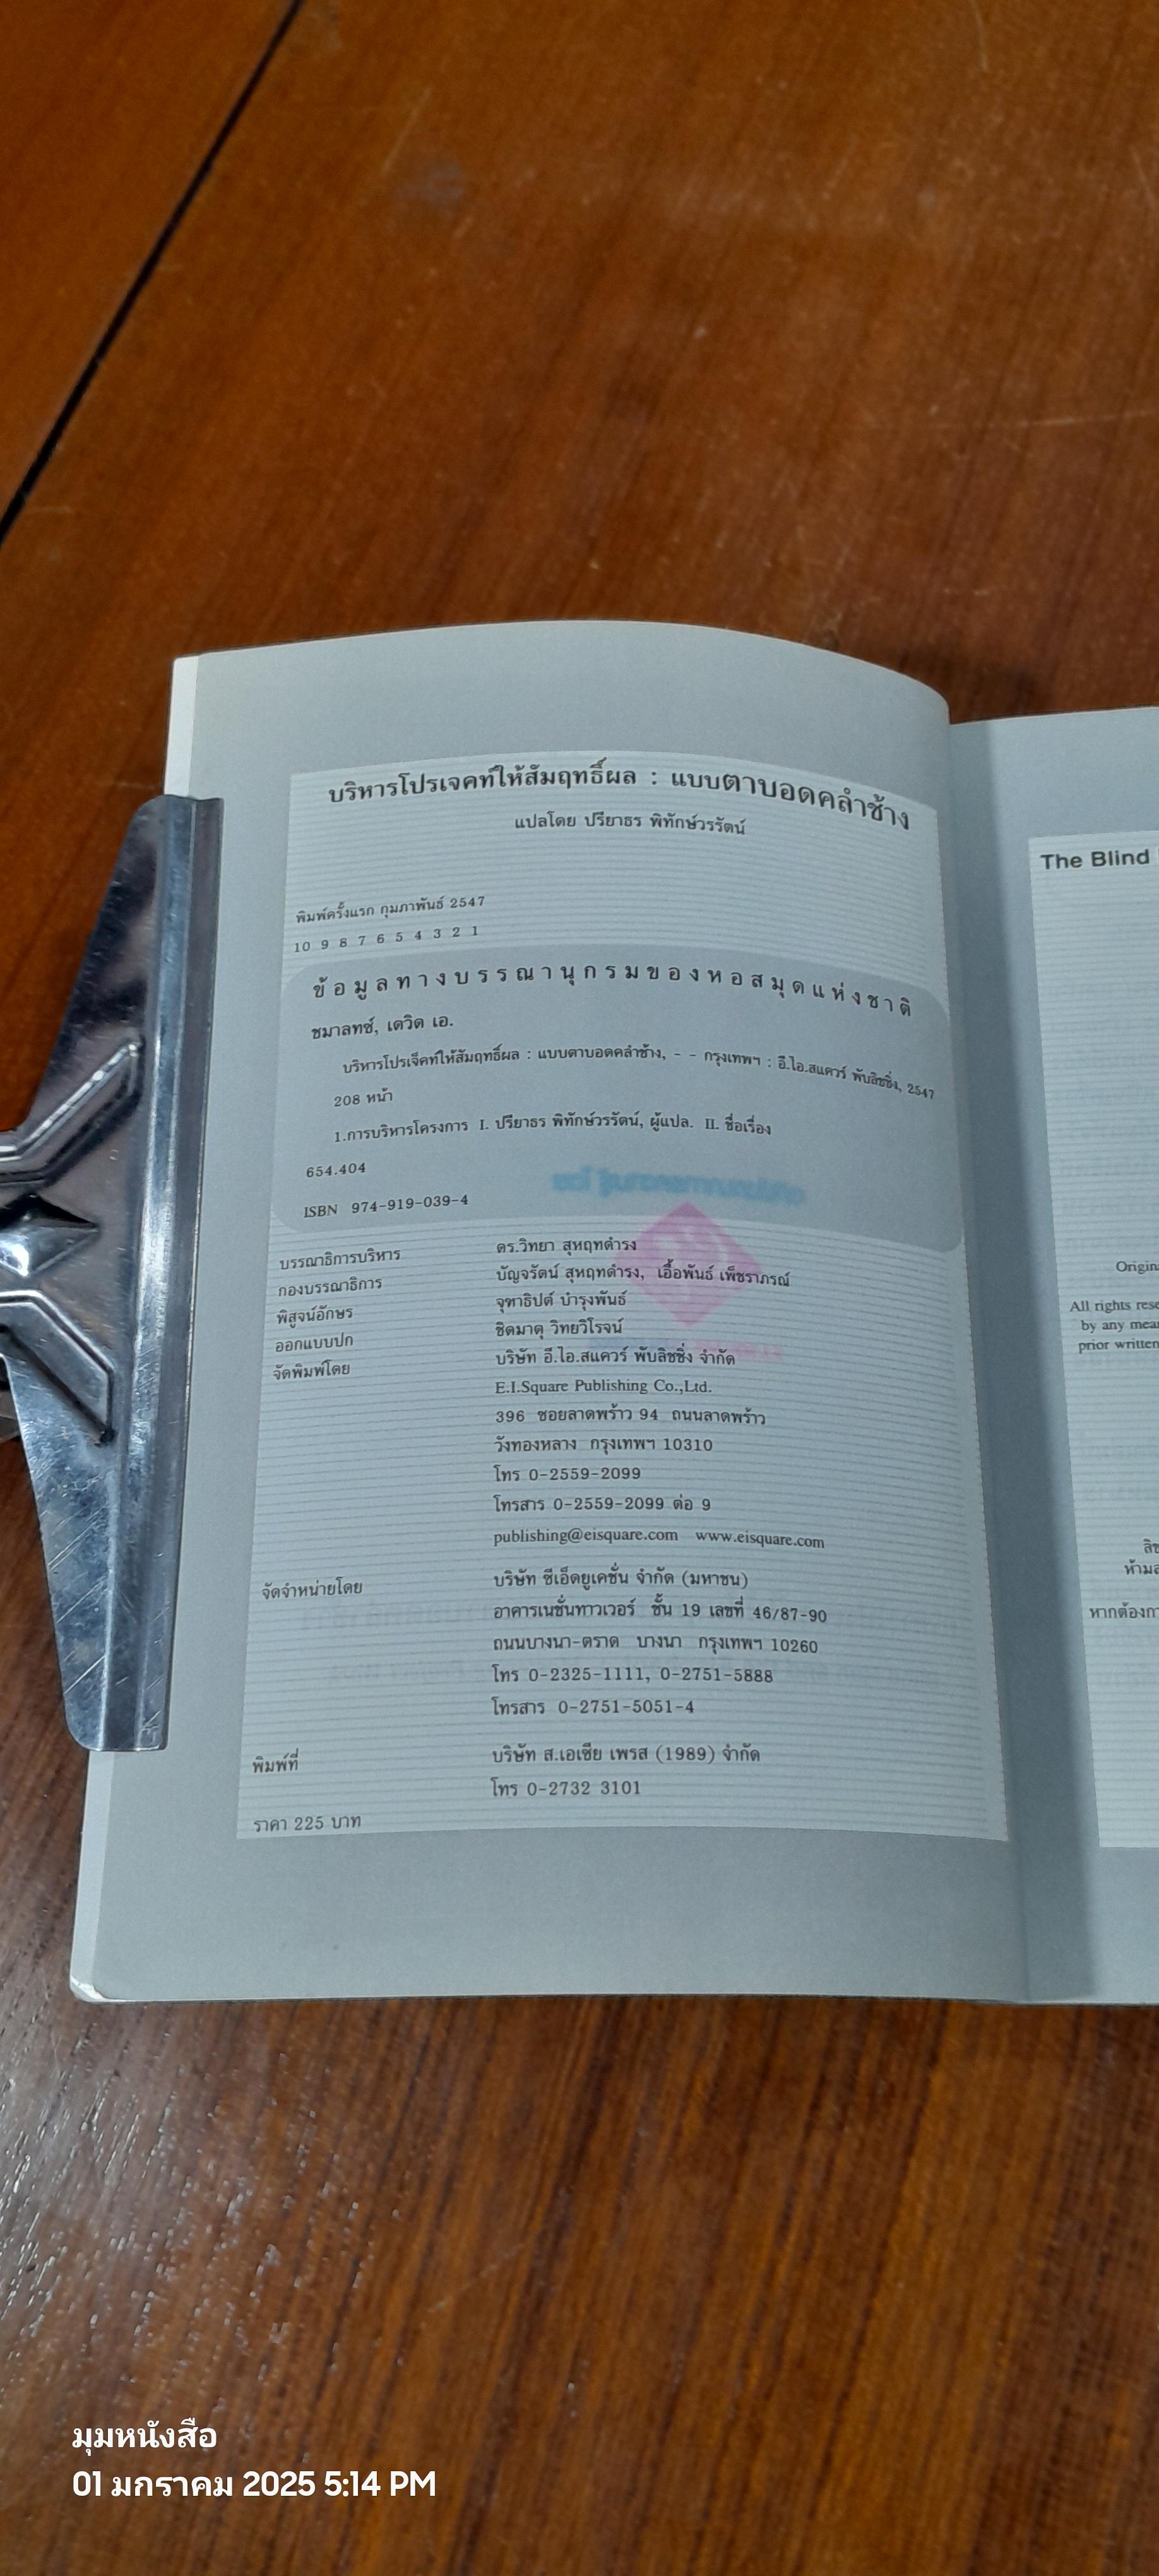 บริหารโปรเจคท์ให้สัมฤทธิ์ผล : แบบตาบอดคลำช้าง
แปลโดย ปรียาธร พิทักษ์วรรัตน์
พิมพ์ครั้งแรก กุมภาพันธ์ 2547
10 9 8 7 6 5 4 3 2 1
ข้อมูลทางบรรณานุกรมของหอสมุดแห่งชาติ
ชมาลทซ์, เดวิด เอ.
บริหารโปรเจ็คท์ให้สัมฤทธิ์ผล : แบบตาบอดคลำช้าง, - - กรุงเทพฯ : อี.ไอ.สแควร์ พับลิชชิ่ง, 2547
208 หน้า
1.การบริหารโครงการ I. ปรียาธร พิทักษ์วรรัตน์, ผู้แปล. II. ชื่อเรื่อง
654.404
ISBN 974-919-039-4
บรรณาธิการบริหาร ดร.วิทยา สุหฤทดำรง
กองบรรณาธิการ บัญจรัตน์ สุหฤทดำรง, เอื้อพันธ์ เพ็ชราภรณ์
พิสูจน์อักษร จุฑาธิปต์ บำรุงพันธ์
ออกแบบปก ชิดมาดุ วิทยวิโรจน์
จัดพิมพ์โดย บริษัท อี.ไอ.สแควร์ พับลิชชิ่ง จำกัด
E.I.Square Publishing Co.,Ltd.
396 ซอยลาดพร้าว 94 ถนนลาดพร้าว
วังทองหลาง กรุงเทพฯ 10310
โทร 0-2559-2099
โทรสาร 0-2559-2099 ต่อ 9
publishing@eisquare.com www.eisquare.com
จัดจำหน่ายโดย บริษัท ซีเอ็ดยูเคชั่น จำกัด (มหาชน)
อาคารเนชั่นทาวเวอร์ ชั้น 19 เลขที่ 46/87-90
ถนนบางนา-ตราด บางนา กรุงเทพฯ 10260
โทร 0-2325-1111, 0-2751-5888
โทรสาร 0-2751-5051-4
พิมพ์ที่ บริษัท ส.เอเซีย เพรส (1989) จำกัด
โทร 0-2732 3101
ราคา 225 บาท
The Blind
Origin
All rights rese
by any mea
prior written
ห้าม
หากต้องกา
มุมหนังสือ
01 มกราคม 2025 5:14 PM